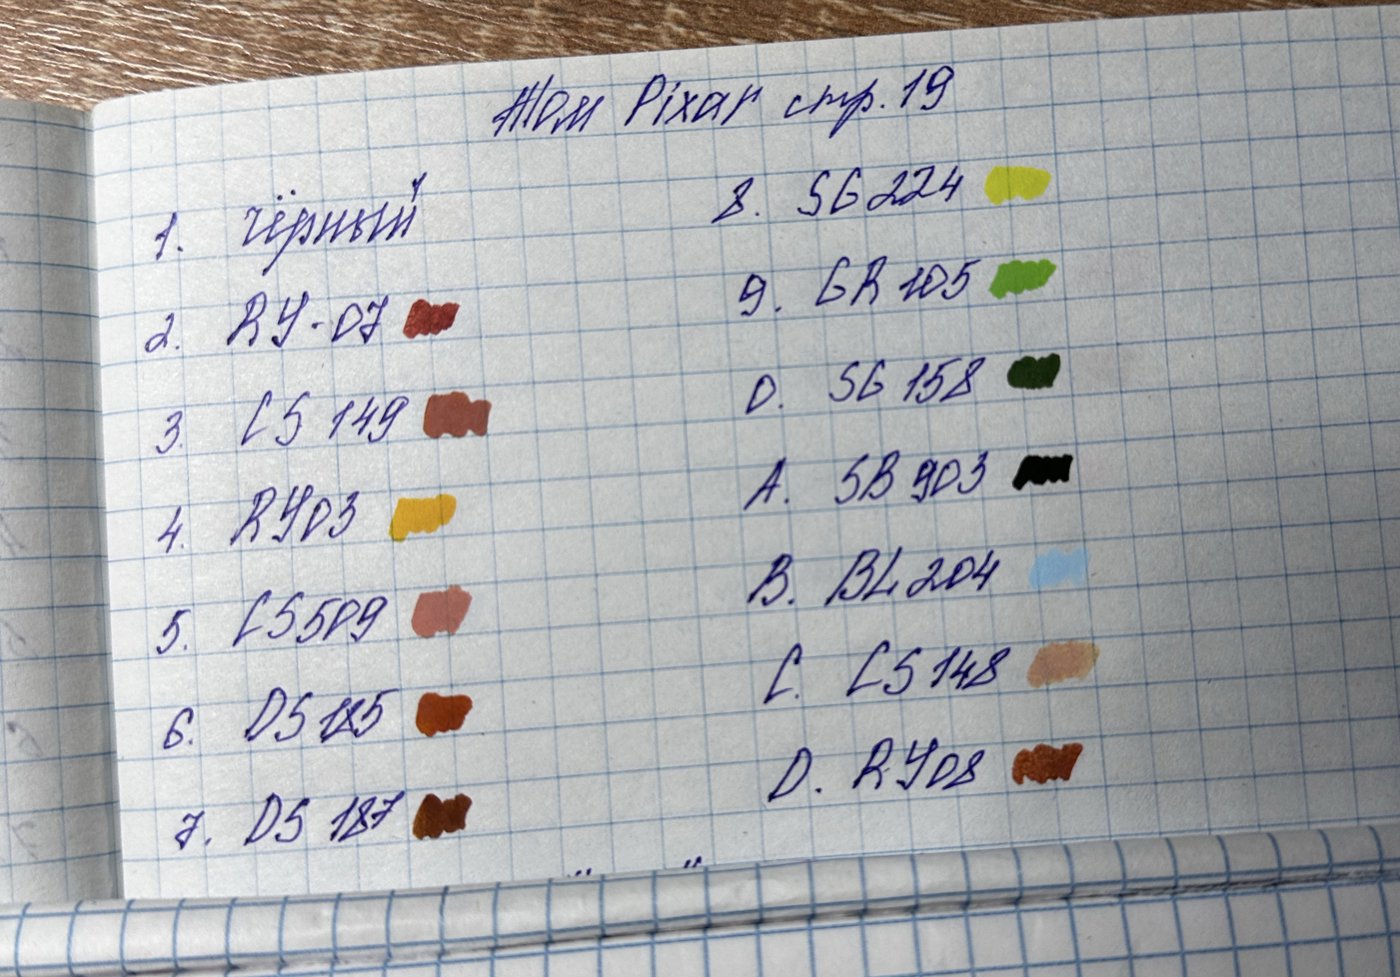 Том Pixar стр. 19
1. чёрный
2. RY-07
3. CS 149
4. RY03
5. CS509
6. DS 185
7. DS 187
8. SG 224
9. GR 105
0. SG 158
A. SB 903
B. BL 204
C. CS 148
D. RY08